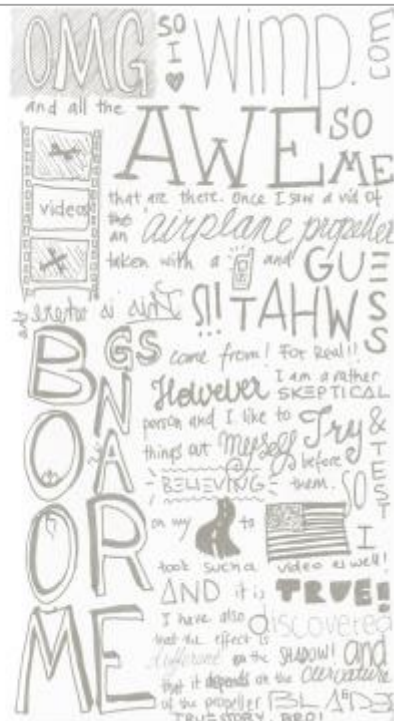 OMG SO I WIMP. COM
and all the AWESOME
videos
that are there. Once I saw a vid of
the
an airplane propeller
taken with a and GUESS
WHAT ?!!
This is where
BOOMERANGS
come from! For Real!!
However I am a rather
SKEPTICAL
person and I like to Try & TEST
things out Myself before
BELIEVING them. SO
on my to I
took such a video as well!
AND it is TRUE!
I have also discovered
that the effect is
different on the SHADOW! and
that it depends on the curvature
of the propeller BLADE
TRUE STORY, BRO!